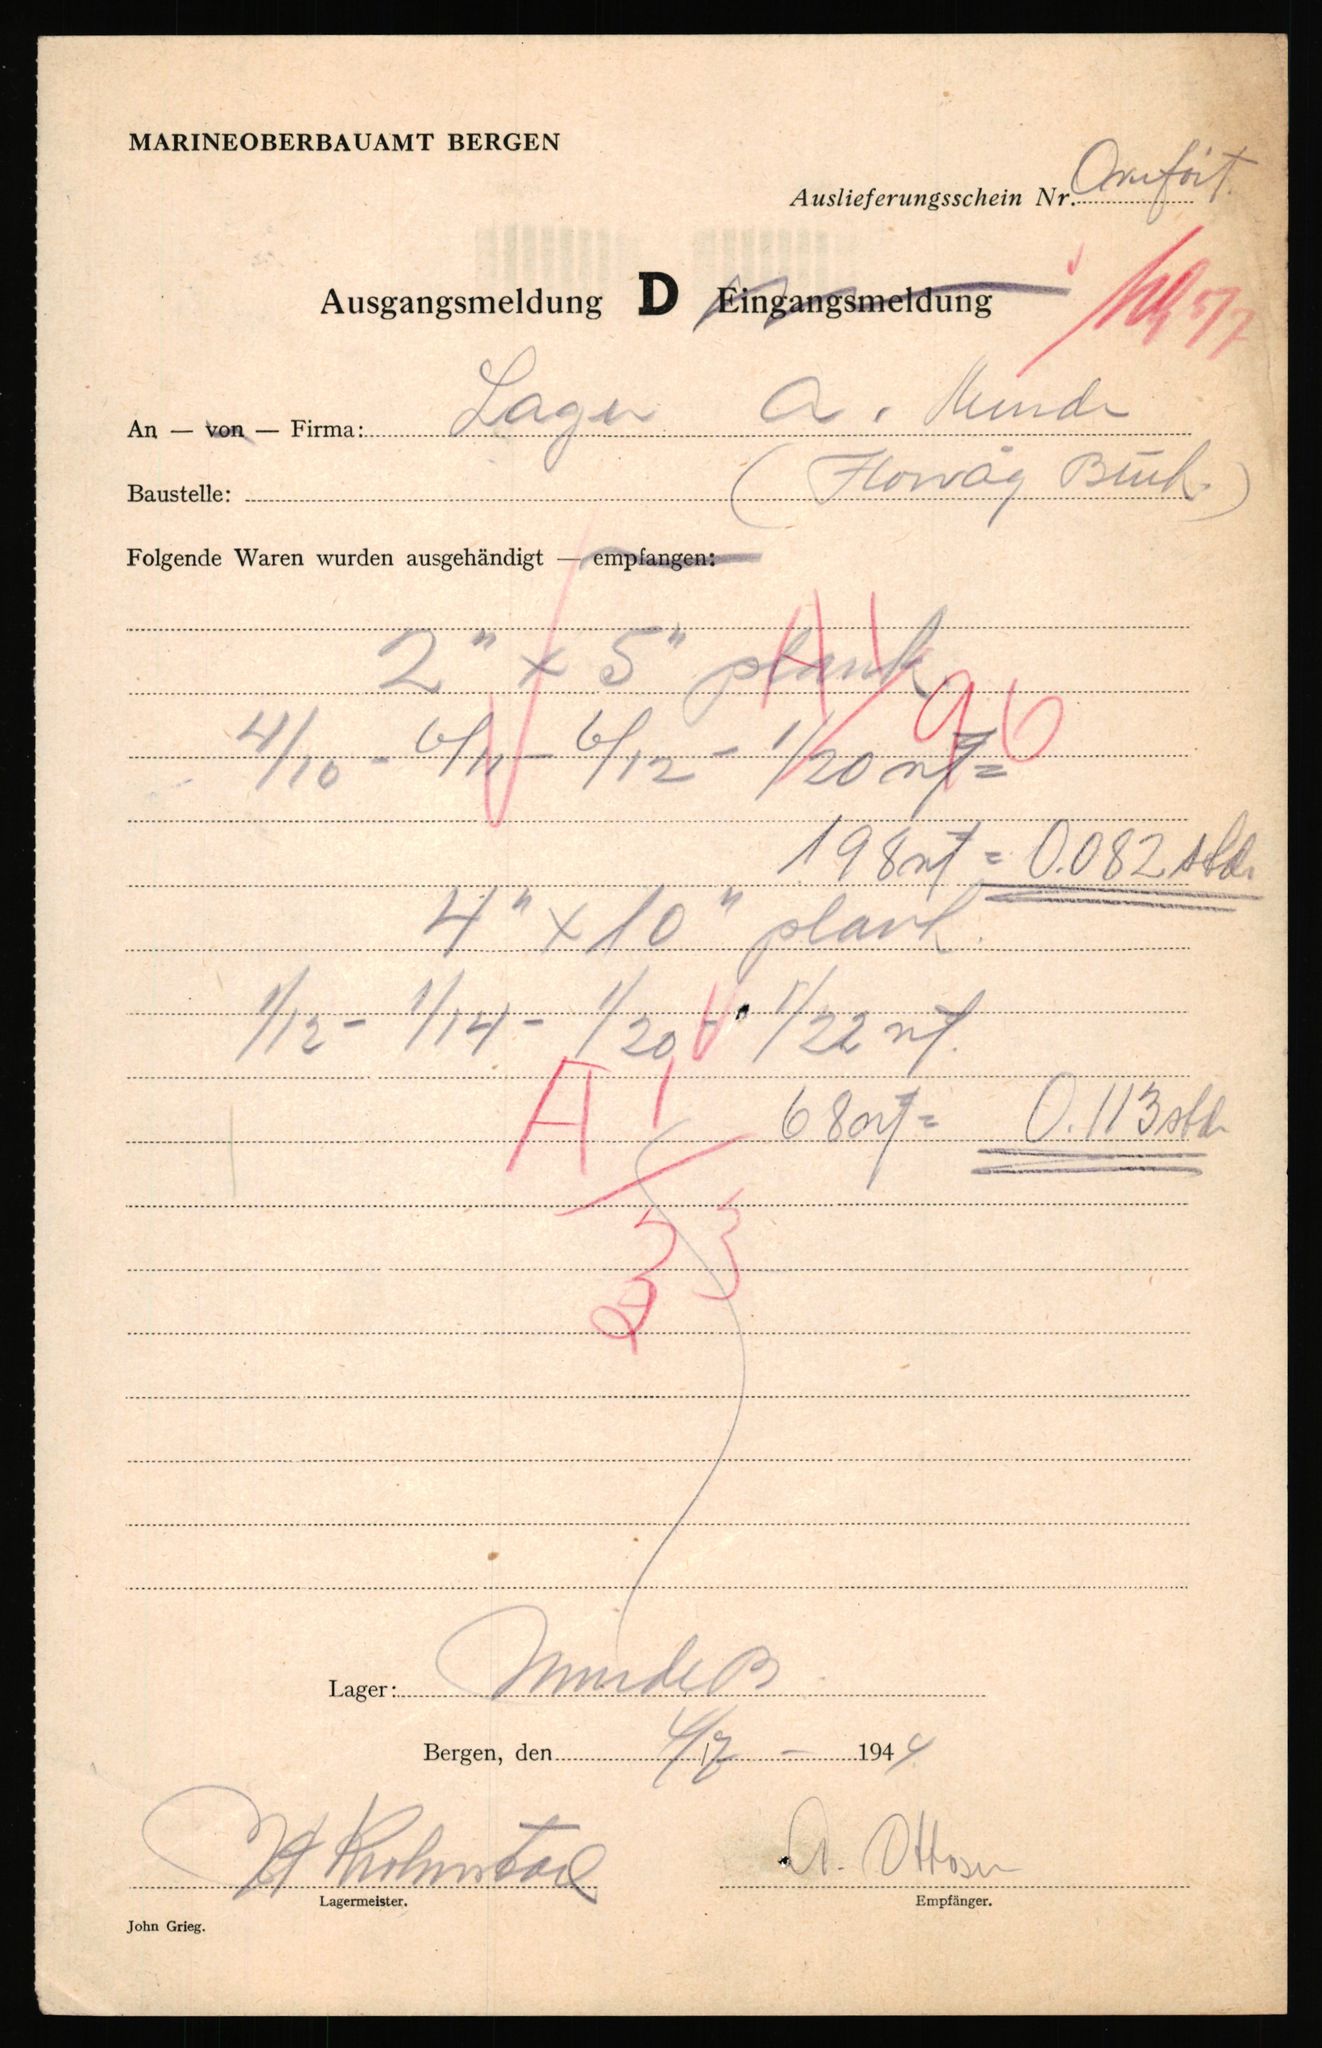 MARINEOBERBAUAMT BERGEN
Auslieferungsschein Nr. Omfört.
Ausgangsmeldung D Eingangsmeldung
5/7
An — von — Firma: Lager A. Minde
Baustelle: (Florvåg Bruk.)
Folgende Waren wurden ausgehändigt — empfangen:
2" x 5" plank
A 1/96
4/10 - 6/11 - 6/12 - 1/20 nf =
198 nf = 0.082 stdr
4" x 10" plank.
1/12 - 1/14 - 1/20 - 1/22 nf.
A 1
68 nf = 0.113 stdr
33
Lager: Minde B
Bergen, den 4/7 - 1944
Lagermeister.
A. Ottosen
Empfänger.
John Grieg.